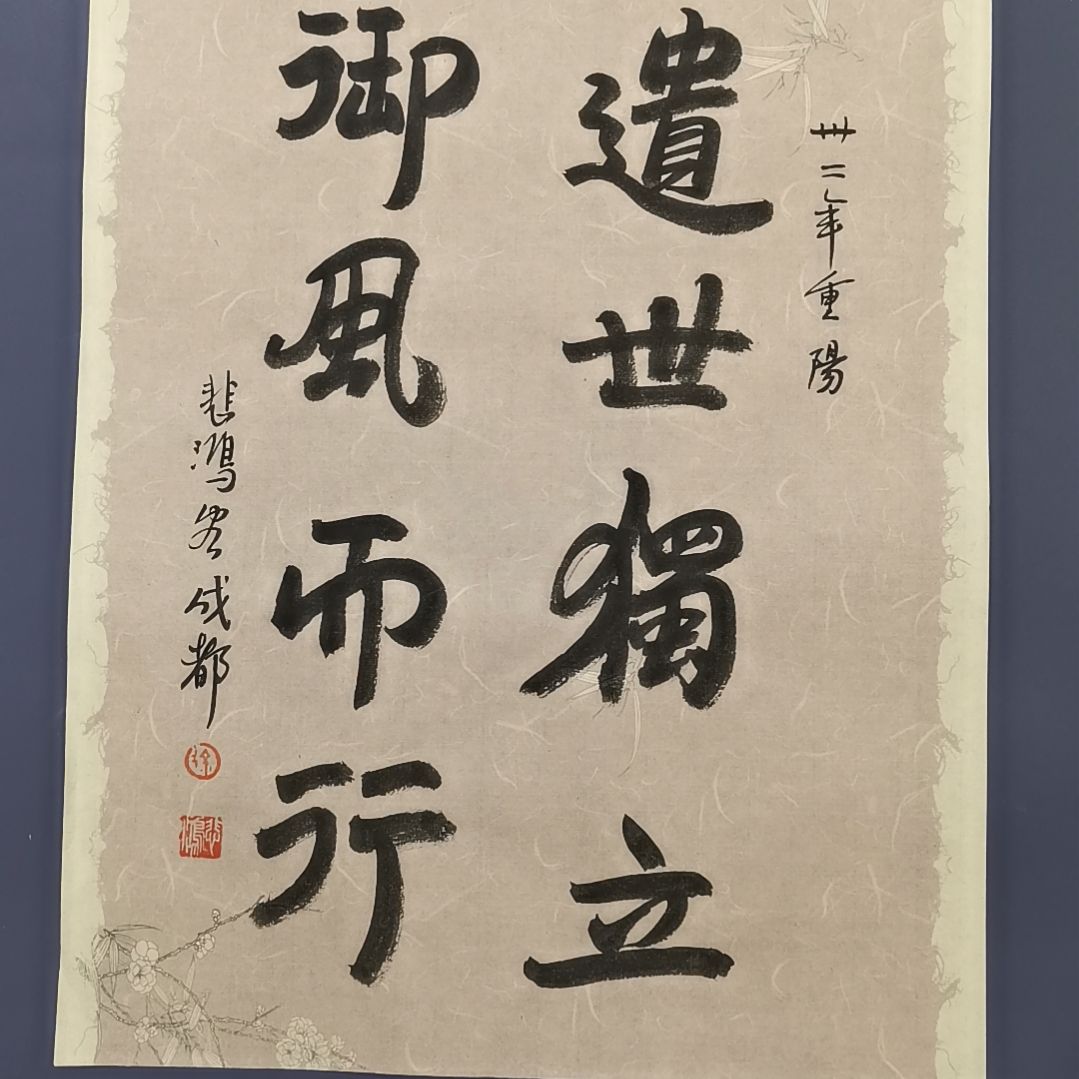 卅二年重陽
遺世獨立
御風而行
悲鴻客成都
徐
悲鴻